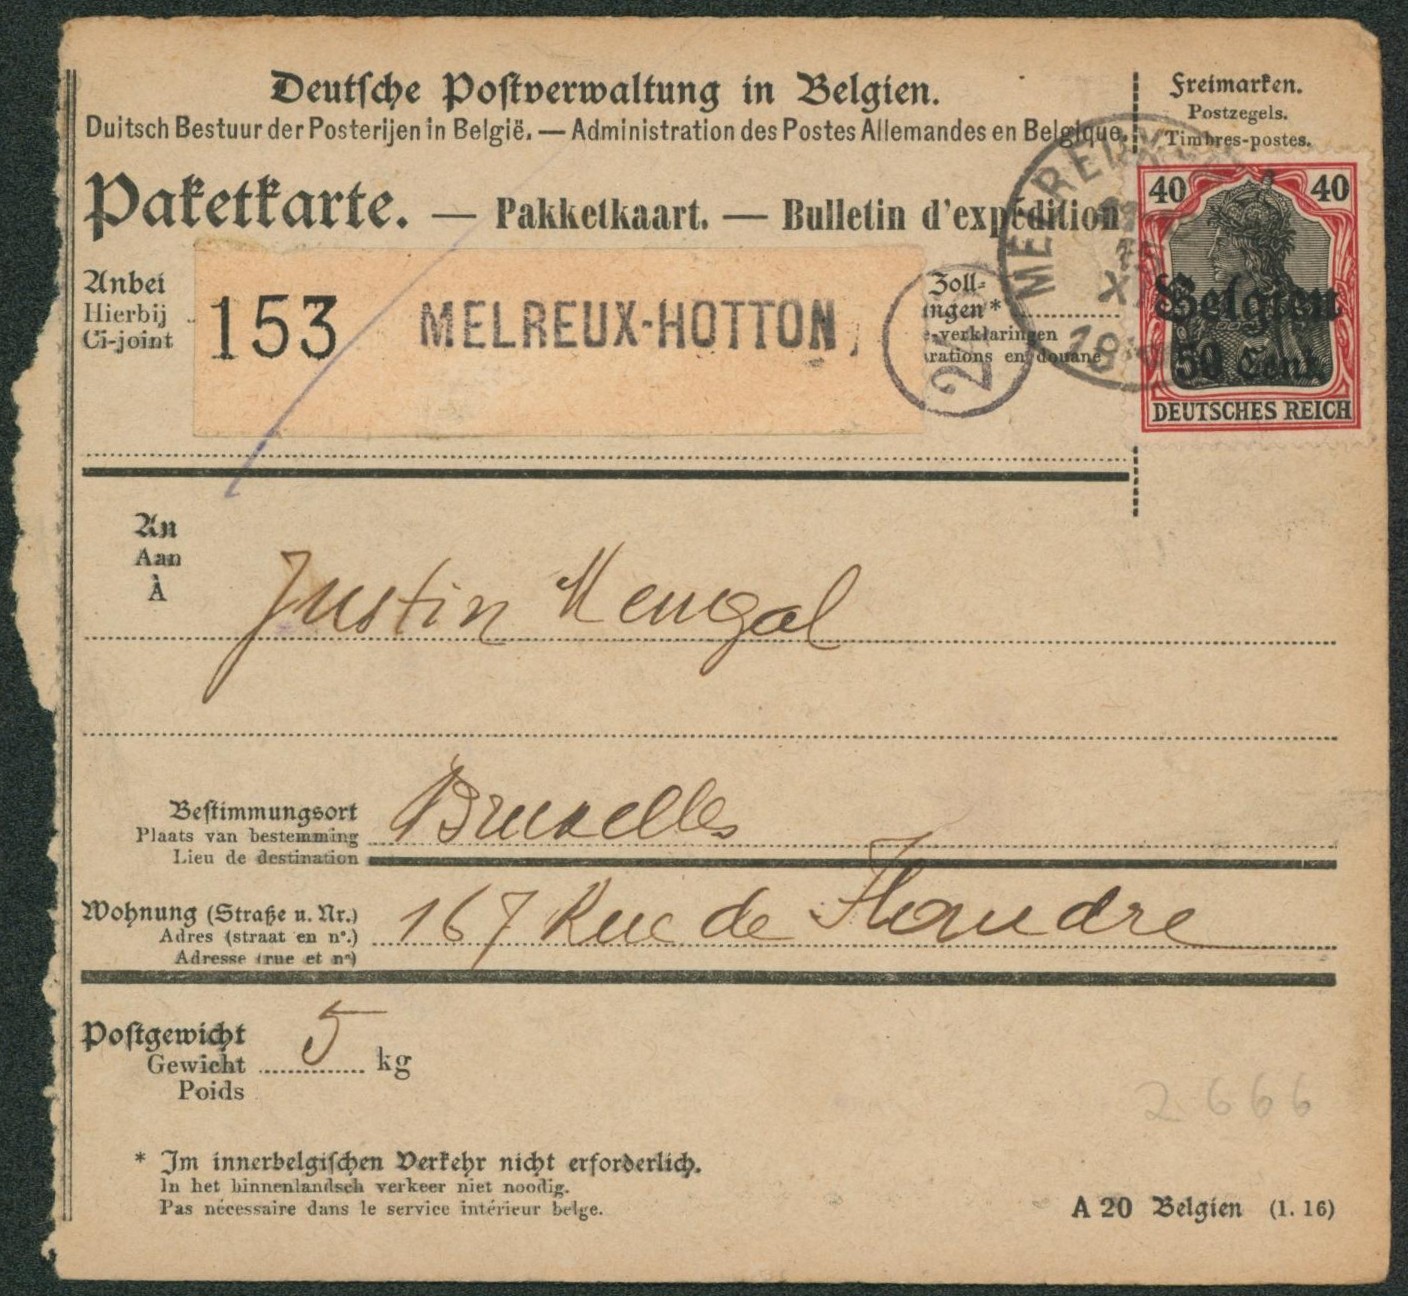 Deutsche Postverwaltung in Belgien.
Duitsch Bestuur der Posterijen in België. — Administration des Postes Allemandes en Belgique.
Freimarken.
Postzegels.
Timbres-postes.
Paketkarte. — Pakketkaart. — Bulletin d'expédition
40 40
Belgien
50 Cent.
DEUTSCHES REICH
Anbei
Hierbij
Ci-joint
153 MELREUX-HOTTON
Zoll-
ngen*
e-verklaringen
rations en douane
An
Aan
À
Justin Mengal
Bestimmungsort
Plaats van bestemming
Lieu de destination
Bruxelles
Wohnung (Straße u. Nr.)
Adres (straat en n°.)
Adresse (rue et n°)
167 Rue de Flandre
Postgewicht
Gewicht
Poids
5 kg
2666
* Im innerbelgischen Verkehr nicht erforderlich.
In het binnenlandsch verkeer niet noodig.
Pas nécessaire dans le service intérieur belge.
A 20 Belgien (1. 16)